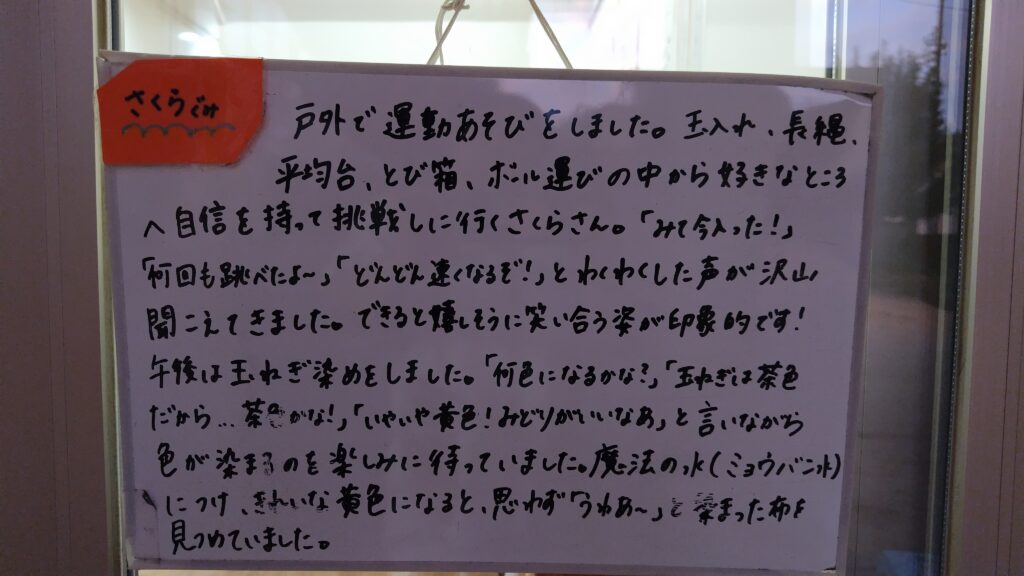 さくらぐみ
戸外で運動あそびをしました。玉入れ、長縄、
平均台、とび箱、ボール運びの中から好きなところ
へ自信を持って挑戦しに行くさくらさん。「みて今入った!」
「何回も跳べたよ〜」「どんどん速くなるぞ!」とわくわくした声が沢山
聞こえてきました。できると嬉しそうに笑い合う姿が印象的です!
午後は玉ねぎ染めをしました。「何色になるかな?」「玉ねぎは茶色
だから…茶色かな!」「いやいや黄色!みどりがいいなあ」と言いながら
色が染まるのを楽しみに待っていました。魔法の水(ミョウバン水)
につけ、きれいな黄色になると、思わず「うわあ〜」と染まった布を
見つめていました。